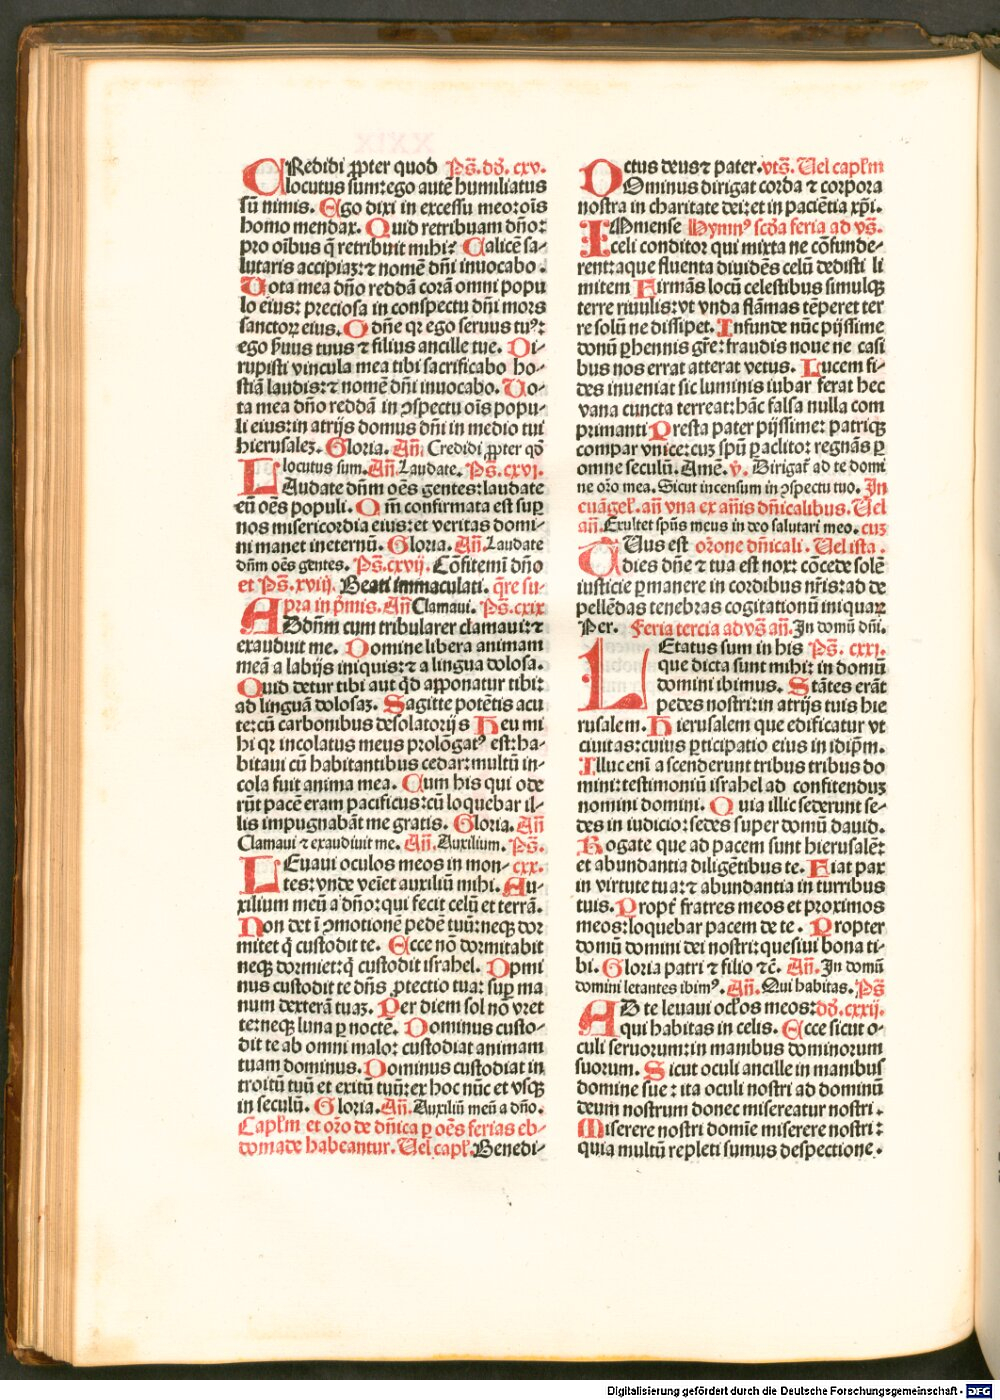 CRedidi ꝓpter quod Ps̄. dd̄. cxv.
locutus sum: ego autē humiliatus
sū nimis. Ego dixi in excessu meo: oīs
homo mendax. Quid retribuam dño:
pro oībus q̄ retribuit mihi? Calicē sa-
lutaris accipiaꝫ: ⁊ nomē dñi inuocabo.
Uota mea dño reddā corā omni popu
lo eius: preciosa in conspectu dñi mors
sanctoꝝ eius. O dñe qꝛ ego seruus tuꝰ:
ego ẜuus tuus ⁊ filius ancille tue. Di-
rupisti vincula mea tibi sacrificabo ho-
stiā laudis: ⁊ nomē dñi inuocabo. Uo-
ta mea dño reddā in ꝯspectu oīs popu-
li eius: in atrijs domus dñi in medio tui
hierusaleꝫ. Gloria. Añ. Credidi ꝓpter qd̄
locutus sum. Añ. Laudate. Ps̄. cxvj.
LAudate dñm oēs gentes: laudate
eū oēs populi. Qm̄ confirmata est suꝑ
nos misericordia eius: et veritas domi-
ni manet in eternū. Gloria. Añ. Laudate
dñm oēs gentes. Ps̄. cxvij. Cōfitemī dño
et Ps̄. xviij. Beati immaculati. q̄re su-
pra in p̄mis. Añ Clamaui. Ps̄. cxix
ADdñm cum tribularer clamaui: ⁊
exaudiuit me. Domine libera animam
meā a labijs iniquis: ⁊ a lingua dolosa.
Quid detur tibi aut qd̄ apponatur tibi:
ad linguā dolosaꝫ. Sagitte potētis acu
te: cū carbonibus desolatorijs Heu mi
hi qꝛ incolatus meus prolōgatꝰ est: ha-
bitaui cū habitantibus cedar: multū in-
cola fuit anima mea. Cum his qui ode
rūt pacē eram pacificus: cū loquebar il-
lis impugnabāt me gratis. Gloria. Añ
Clamaui ⁊ exaudiuit me. Añ. Auxilium. Ps̄.
LEuaui oculos meos in mon- cxx.
tes: vnde veīet auxiliū mihi. Au-
xilium meū a dño: qui fecit celū et terrā.
Non det ī ꝯmotionē pedē tuū: neqꝫ dor
mitet q̄ custodit te. Ecce nō dormitabit
neqꝫ dormiet: q̄ custodit israhel. Dpmi
nus custodit te dñs ꝓtectio tua: suꝑ ma
num dexterā tuaꝫ. Per diem sol nō vret
te: neqꝫ luna ꝑ noctē. Dominus custo-
dit te ab omni malo: custodiat animam
tuam dominus. Dominus custodiat in
troitū tuū et exitū tuū: ex hoc nūc et vsqꝫ
in seculū. Gloria. Añ. Auxiliū meū a dño.
Capłm et orō de dñica ꝑ oēs ferias eb-
domade habeantur. Uel capł. Benedi-
Dctus deus ⁊ pater. vts̄. Uel capłm
Ominus dirigat corda ⁊ corpora
nostra in charitate dei: et in paciētia xp̄i.
IMmense Hymnꝰ scd̄a feria ad vs̄.
celi conditor qui mixta ne cōfunde-
rent: aque fluenta diuidēs celū dedisti li
mitem Firmās locū celestibus simulqꝫ
terre riuulis: vt vnda flāmas tēperet ter
re solū ne dissipet. Infunde nūc pijssime
donū ꝑhennis gr̄e: fraudis noue ne casi
bus nos errat atterat vetus. Lucem fi-
des inueniat sic luminis iubar ferat hec
vana cuncta terreat: hāc falsa nulla com
primanti Presta pater pijssime: patriqꝫ
compar vnice: cuꝫ spū ꝑaclito: regnās ꝑ
omne seculū. Amē. v̄. Dirigat̄ ad te domi
ne orō mea. Sicut incensum in ꝯspectu tuo. In
cuāgeł. añ vna ex añis dñicalibus. Uel
añ. Exultet spūs meus in deo salutari meo. cuꝫ
TUus est orōne dñicali. Uel ista.
dies dñe ⁊ tua est nox: cōcede solē
iusticie ꝑmanere in cordibus nr̄is: ad de
pellēdas tenebras cogitationū iniquaꝝ
Per. Feria tercia ad vs̄ añ. In domū dñi.
LEtatus sum in his Ps̄. cxxj.
que dicta sunt mihi: in domū
domini ibimus. Stātes erāt
pedes nostri: in atrijs tuis hie
rusalem. Hierusalem que edificatur vt
ciuitas: cuius ꝑticipatio eius in idip̄m.
Illuc enī ascenderunt tribus tribus do
mini: testimoniū israhel ad confitenduꝫ
nomini domini. Quia illic sederunt se-
des in iudicio: sedes super domū dauid.
Rogate que ad pacem sunt hierusalē:
et abundantia diligētibus te. Fiat pax
in virtute tua: ⁊ abundantia in turribus
tuis. Propt̄ fratres meos et proximos
meos: loquebar pacem de te. Propter
domū domini dei nostri: quesiui bona ti-
bi. Gloria patri ⁊ filio ⁊c̄. Añ. In domū
domini letantes ibimꝰ. Añ. Qui habitas. Ps̄
AD te leuaui ocłos meos: dd̄. cxxij.
qui habitas in celis. Ecce sicut o-
culi seruorum: in manibus dominorum
suorum. Sicut oculi ancille in manibus
domine sue: ita oculi nostri ad dominū
deum nostrum donec misereatur nostri.
Miserere nostri domīe miserere nostri:
quia multū repleti sumus despectione.
Digitalisierung gefördert durch die Deutsche Forschungsgemeinschaft - DFG